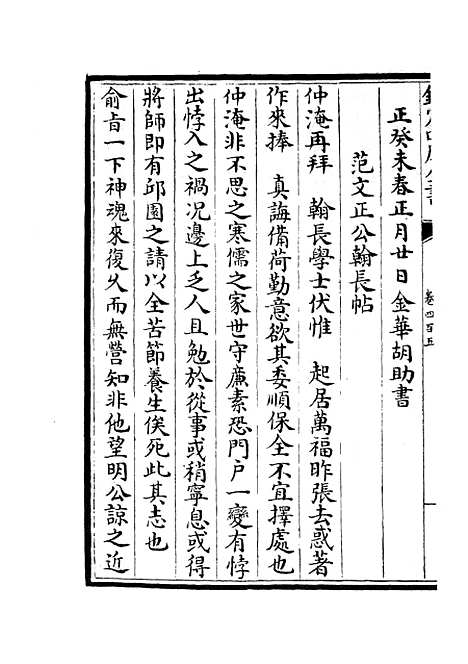 正癸未春正月廿日金華胡助書
范文正公翰長帖
仲淹再拜　翰長學士伏惟　起居萬福昨張去惑著
作來捧　真誨備荷勤意欲其委順保全不宜擇處也
仲淹非不思之寒儒之家世守廉素恐門户一變有悖
出悖入之禍况邊上乏人且勉於從事或稍寧息或得
將師即有邱園之請以全苦節養生俟死此其志也
俞㫖一下神魂來復久而無營知非他望明公諒之近
卷四百五